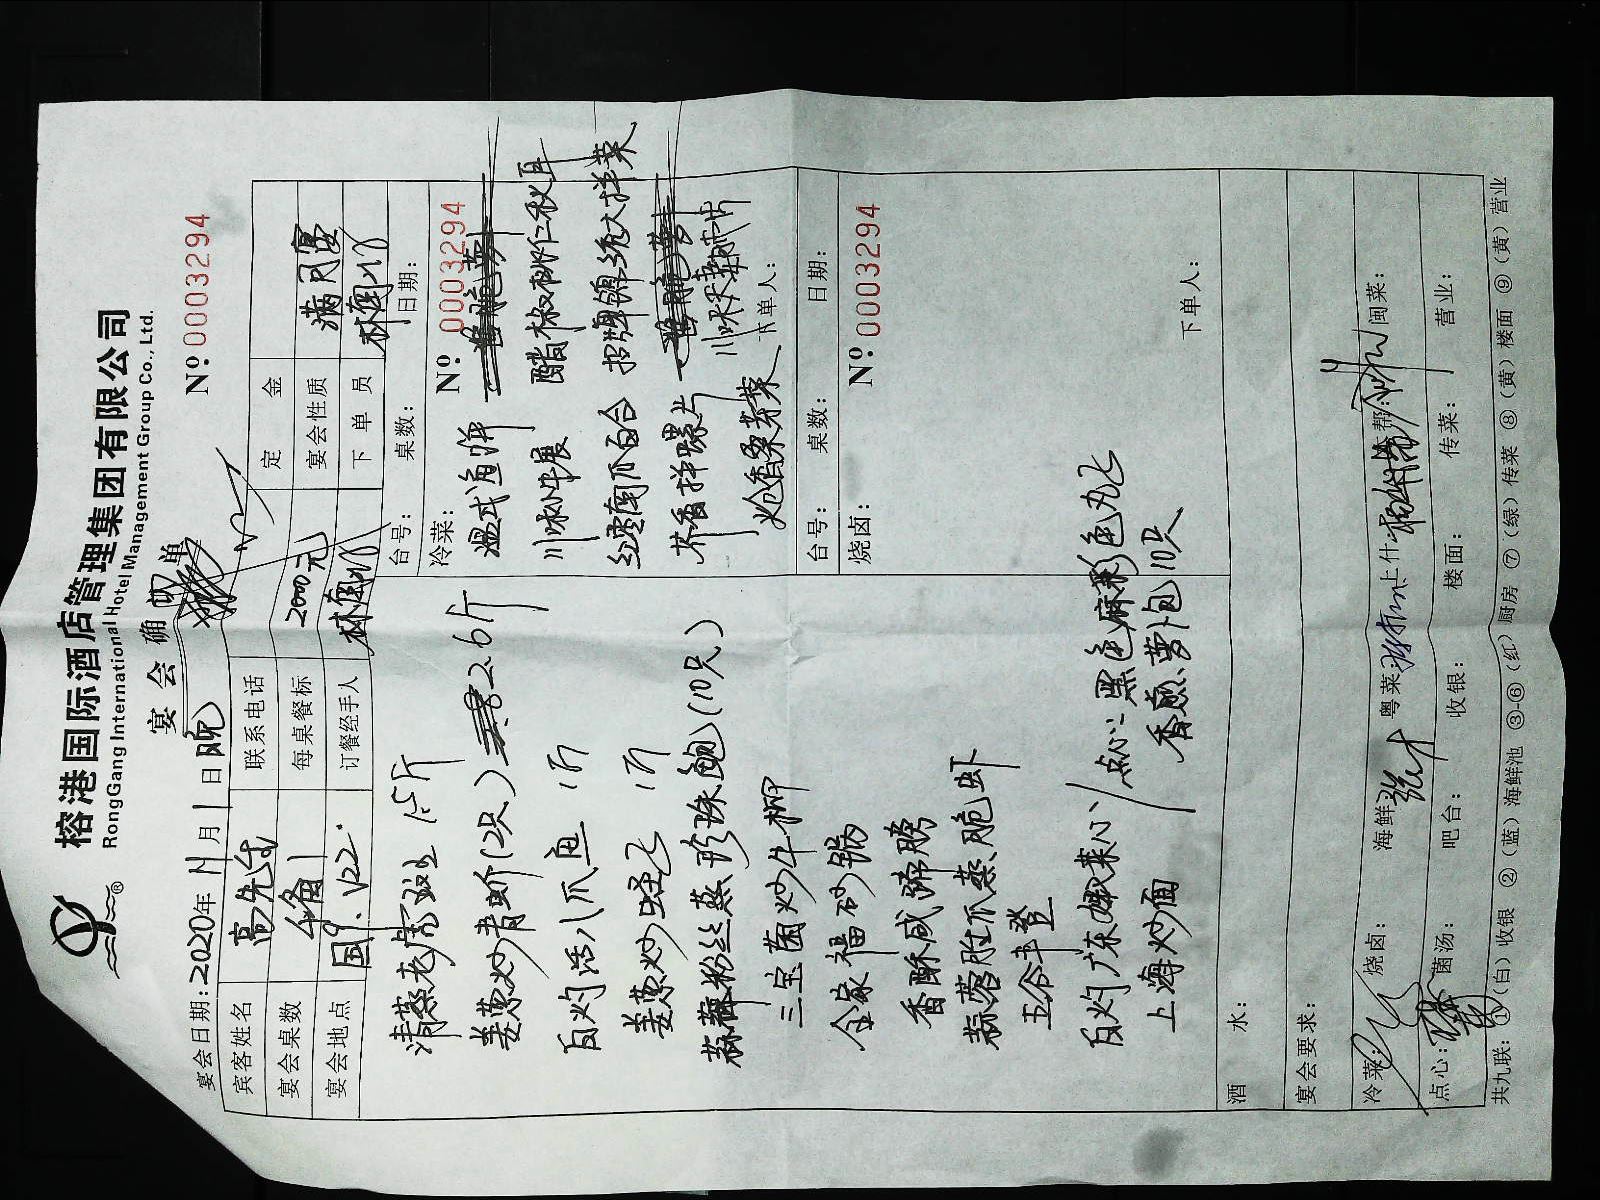 榕港国际酒店管理集团有限公司
RongGang International Hotel Management Group Co., Ltd.
®
宴会确认单
Nº 0003294
宴会日期：2020年11月1日晚
宾客姓名 高先生 联系电话 定金
宴会桌数 每桌餐标 2000元 宴会性质 满月宴
宴会地点 国9. V22. 订餐经手人 林 下单员 林
清蒸老虎斑 1.5斤
姜葱炒青蚧(2只) 2.6斤
白灼活八爪鱼 1斤
姜葱炒蛏子 1斤
蒜蓉粉丝蒸珍珠鲍(10只)
三宝菌炒牛柳
全家福砂锅
香酥咸蹄膀
蒜蓉胜瓜蒸脆虾
五谷丰登
白灼广东菜心
上海炒面
点心：黑色麻彩色丸子
香煎萝卜包10只
台号： 桌数： 日期：
冷菜： Nº 0003294
温式
川味牛展 醋椒桃仁秋耳
红枣南瓜百合 招牌
芥香拌螺片 川味
炝香桑芽菜 下单人：
台号： 桌数： 日期：
烧卤： Nº 0003294
下单人：
酒水：
宴会要求：
冷菜： 烧卤： 海鲜： 粤菜： 上什： 水帮： 闽菜：
点心： 菌汤： 吧台： 收银： 楼面： 传菜： 营业：
共九联：①(白)收银 ②(蓝)海鲜池 ③-⑥(红)厨房 ⑦(绿)传菜 ⑧(黄)楼面 ⑨(黄)营业